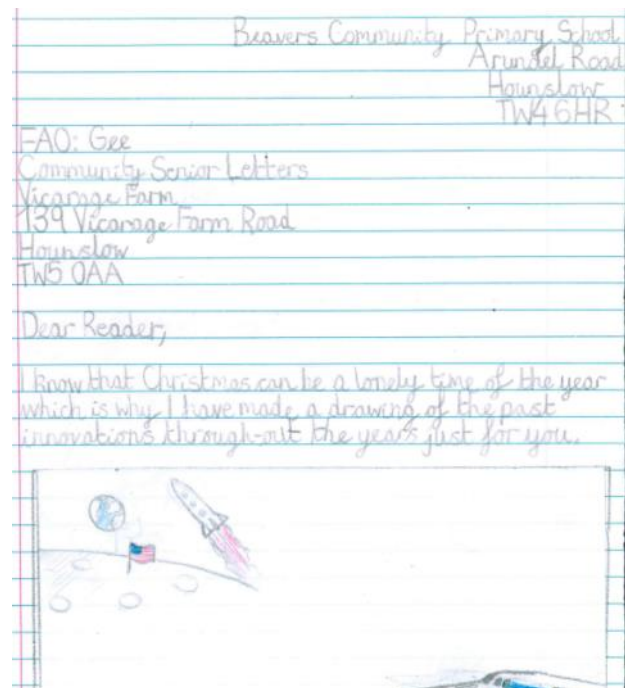 Beavers Community Primary School
Arundel Road
Hounslow
TW4 6HR
FAO: Gee
Community Senior Letters
Vicarage Farm
139 Vicarage Farm Road
Hounslow
TW5 0AA
Dear Reader,
I know that Christmas can be a lonely time of the year
which is why I have made a drawing of the past
innovations through-out the years just for you.